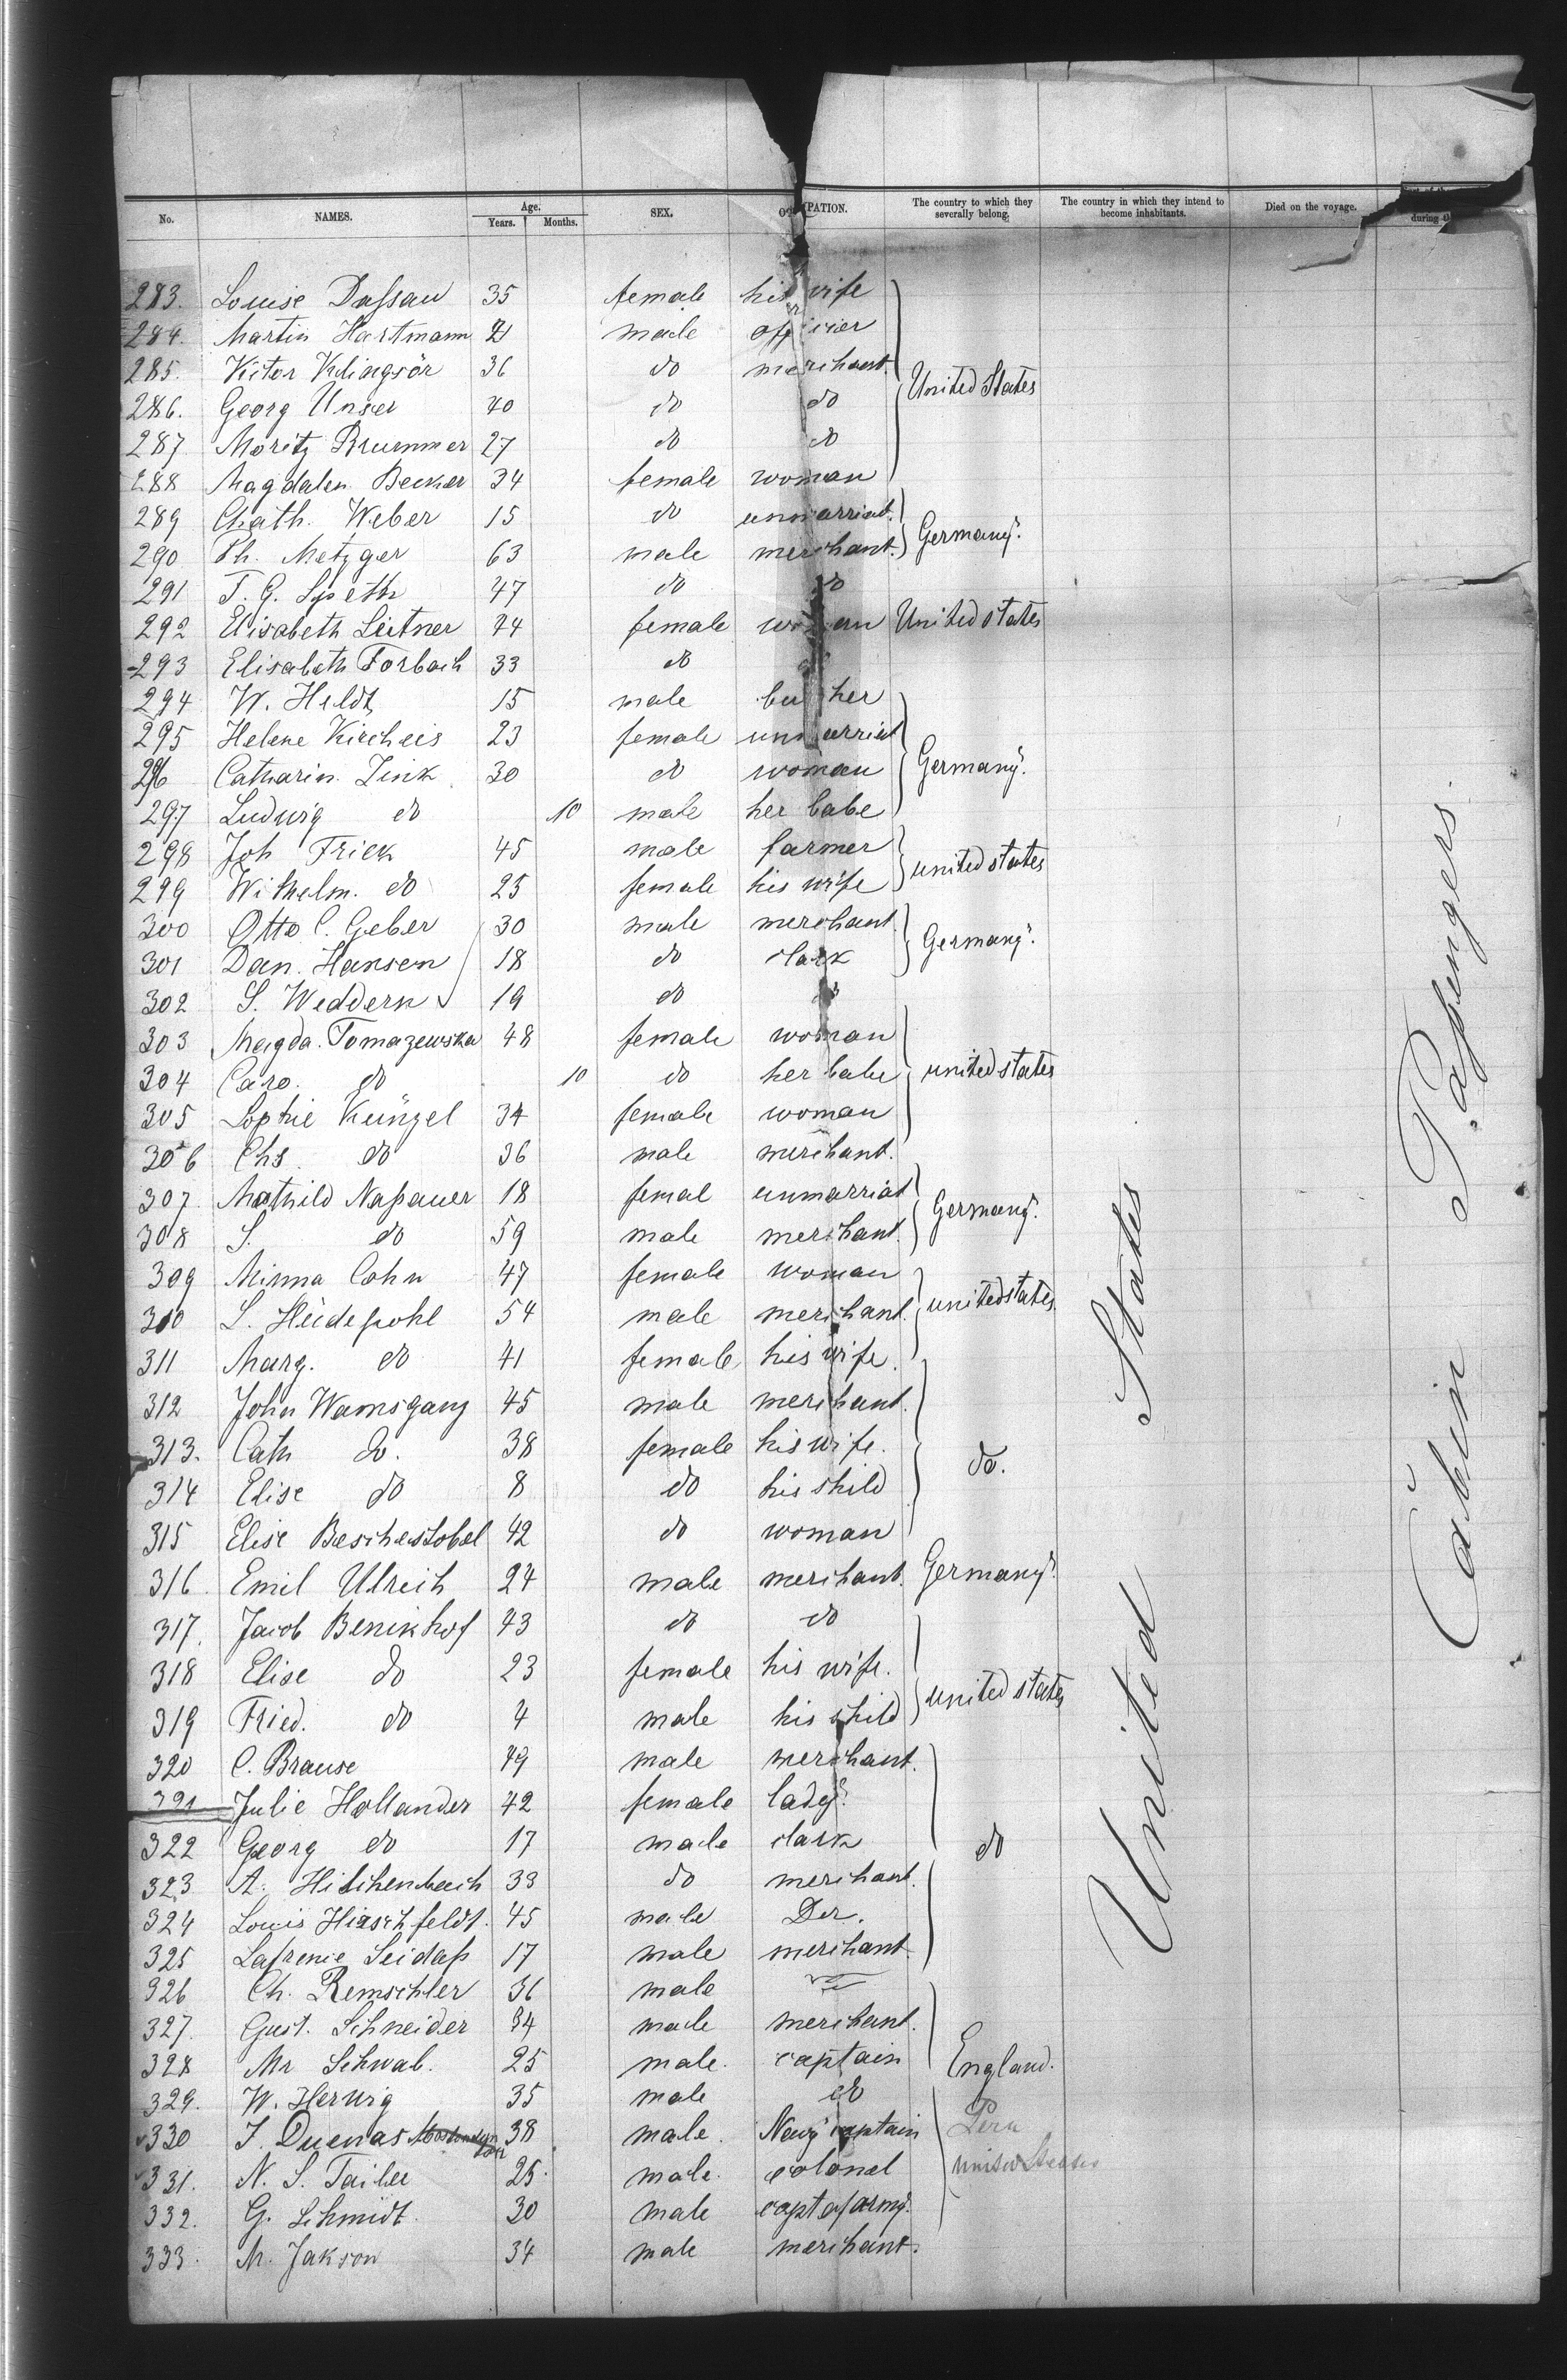 No. NAMES. Age. Years. Months. SEX. PATION. The country to which they severally belong. The country in which they intend to become inhabitants. Died on the voyage. during
283. Louise Daſsau 35 female his wife
284. Martin Hartmann male officier
285. Victor Klingsör 36 do merchant.
286. Georg Unser 40 do do United States
287. Moritz Brummer 27 do do
288 Magdalen Becker 34 female woman
289 Chath. Weber 15 do unmarriat.
290 Ph. Metzger 63 male merchant. Germany.
291 T. G. Speth 47 do do
292 Elisabeth Leitner 74 female woman United states
293 Elisabeth Forbach 33 do
294 W. Heldt 15 male butcher
295 Helene Kircheis 23 female unmarriat
296 Catharin. Zink 30 do woman Germany.
297 Ludwig do 10 male her babe
298 Joh Frick 45 male farmer
299 Wilhelm. do 25 female his wife united states
300 Otto C. Geber 30 male merchant.
301 Dan. Hansen 18 do clark Germany.
302 S. Weddern 19 do do
303 Magda. Tomazewska 48 female woman
304 Caro. do 10 do her babe united states
305 Sophie Küngel 34 female woman
306 Chs. do 36 male merchant.
307. Mathild Naſsauer 18 femal unmarriat
308 S. do 59 male merchant. Germany.
309 Minna Cohn 47 female woman
310 L. Heidepohl 54 male merchant. united states
311 Marg. do 41 female his wife.
312 John Wamsganz 45 male merchant.
313. Cath do. 38 female his wife. do.
314 Elise do 8 do his child
315 Elise 42 do woman
316. Emil Ulreich 24 male merchant. Germany.
317. Jacob Benikhof 43 do do
318 Elise do 23 female his wife.
319 Fried. do 4 male his child united states
320 C. Brause 49 male merchant.
321 Julie Hollander 42 female lady.
322 Georg do 17 male clark do
323 A. Hilchenbach 33 do merchant.
324 Louis Hirschfeldt. 45 male Der.
325 Seidaſs 17 male merchant.
326 Ch. Remschler 36 male
327. Gust. Schneider 34 male merchant.
328 Mr Schwab. 25 male. captain England.
329. W. Herwig 35 male do
330 J. Duenas 38 male. Navy captain Peru
331. N. S. Tailer 25. male. colonel United States
332. G. Schmidt. 30 male capt of army.
333. M. Jakson 34 male merchant.
United States
Cabin Paſsengers.